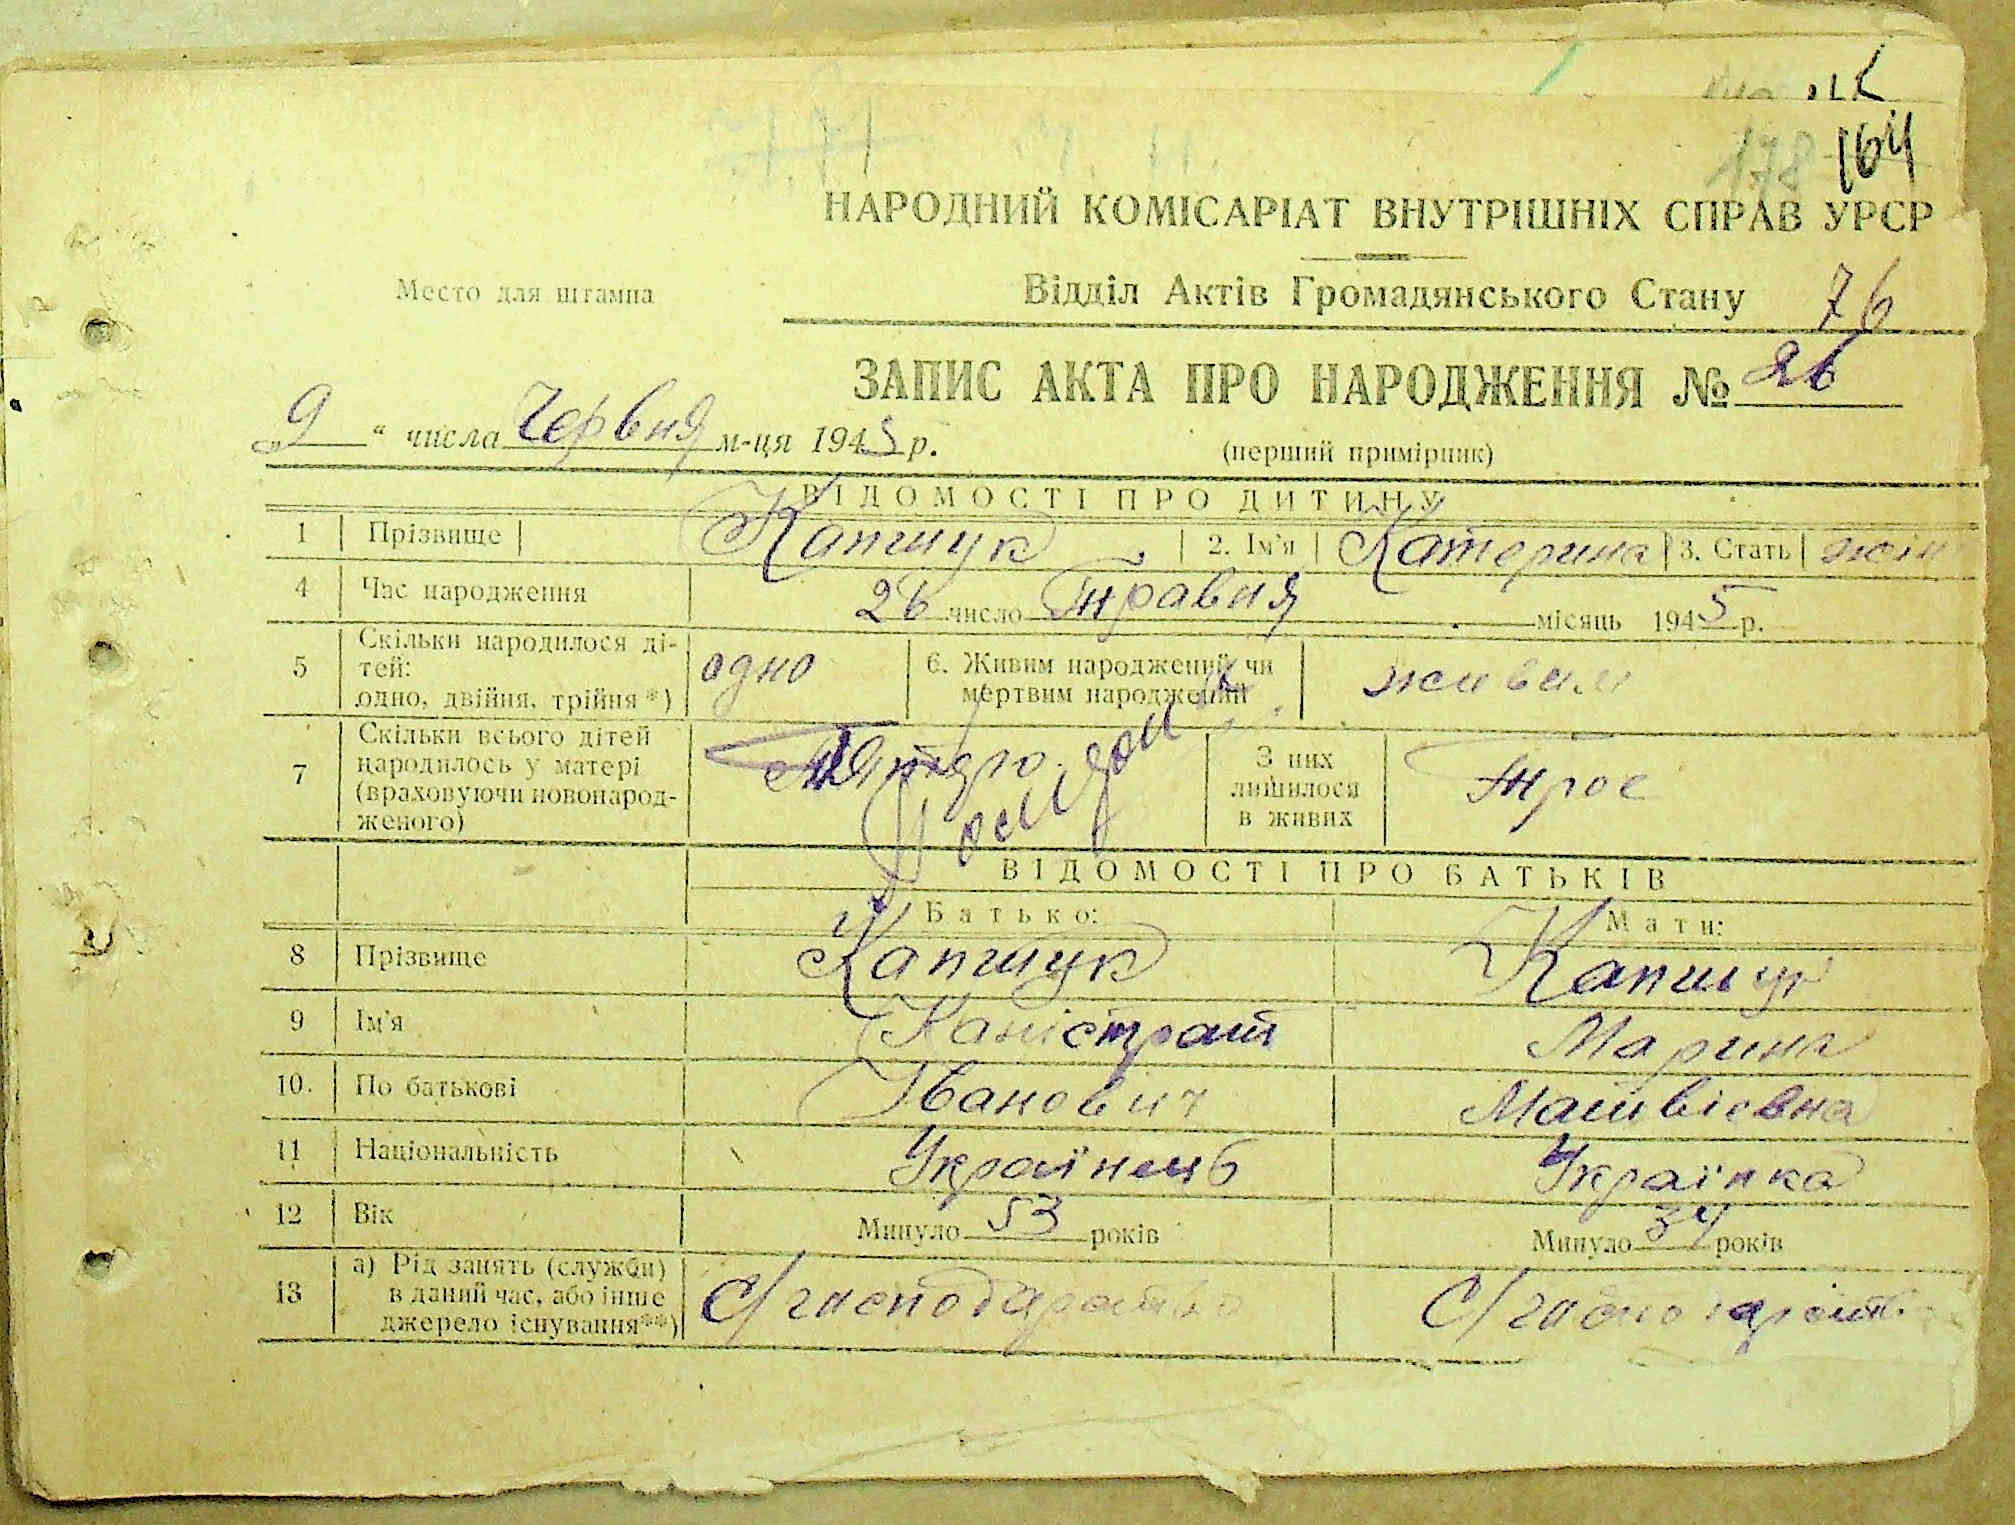 178 164
НАРОДНИЙ КОМІСАРІАТ ВНУТРІШНІХ СПРАВ УРСР
Место для штампа
Відділ Актів Громадянського Стану 76
ЗАПИС АКТА ПРО НАРОДЖЕННЯ № 26
„9“ числа Червня м-ця 1945 р.
(перший примірник)
ВІДОМОСТІ ПРО ДИТИНУ
1 Прізвище Капшук 2. Ім'я Катерина 3. Стать жін
4 Час народження 26 число Травня місяць 1945 р.
5 Скільки народилося дітей: одно, двійня, трійня *) одно 6. Живим народжений чи мертвим народжений живим
7 Скільки всього дітей народилось у матері (враховуючи новонародженого) З них лишилося в живих Трое
ВІДОМОСТІ ПРО БАТЬКІВ
Батько: Мати:
8 Прізвище Капшук Капшук
9 Ім'я Каністрат Марина
10. По батькові Іванович Матвієвна
11 Національність Українець Українка
12 Вік Минуло 53 років Минуло 34 років
13 а) Рід занять (служби) в даний час, або інше джерело існування **) С/господарство С/господарство